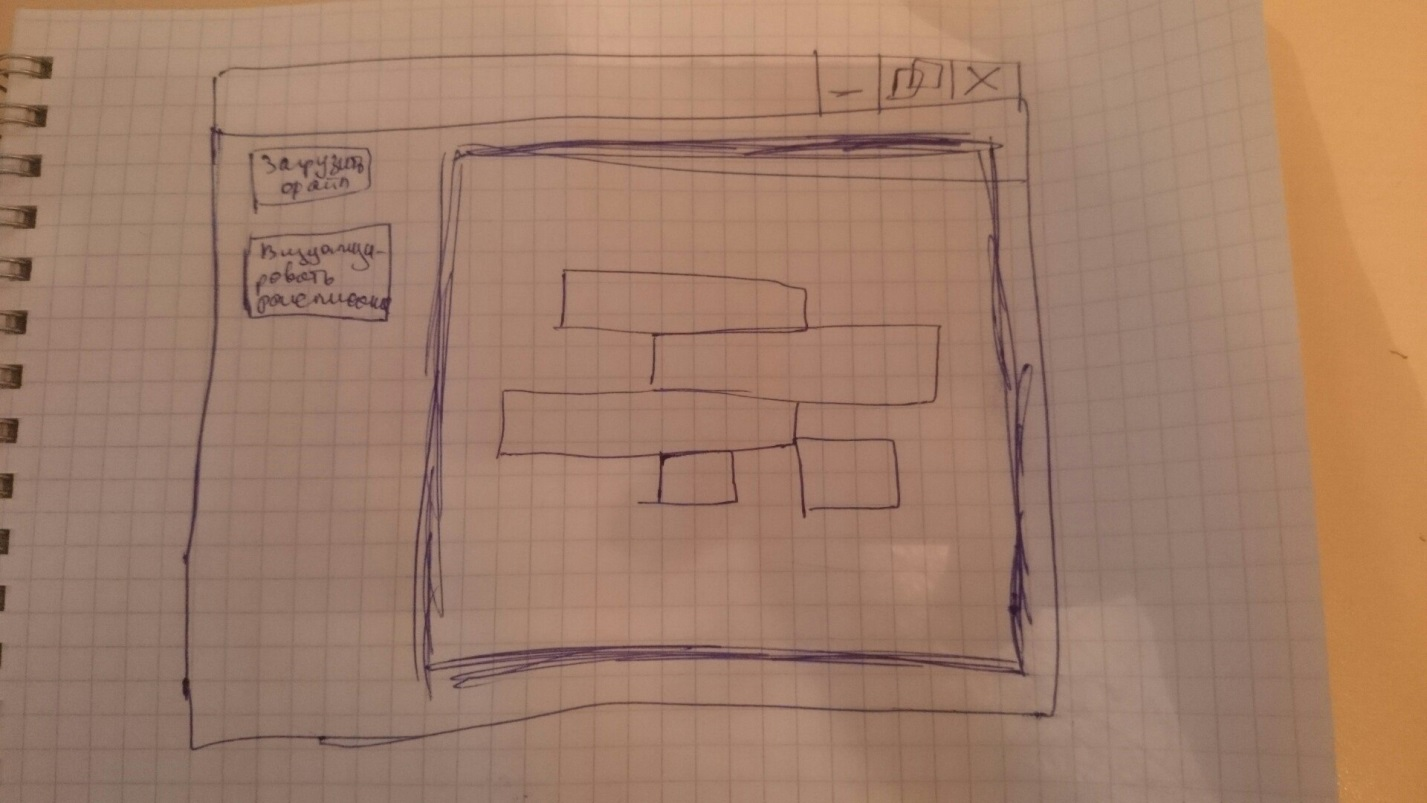 Загрузить
файл
Визуализи-
ровать
расписание